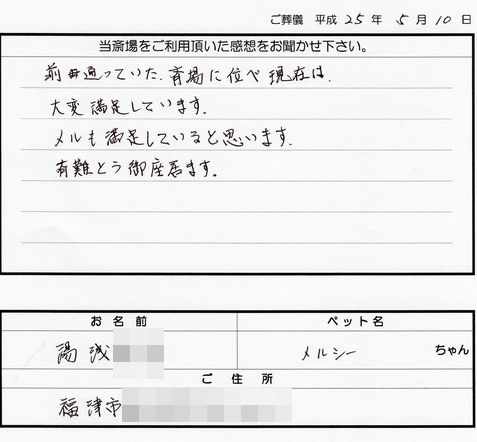 ご葬儀 平成 25 年 5 月 10 日
当斎場をご利用頂いた感想をお聞かせ下さい。
前毌通っていた.斉場に位べ現在は.
大変満足しています.
メルも満足していると思います.
有難とう御座居ます。
お名前
ペット名
陽浅
メルシー ちゃん
ご住所
福津市